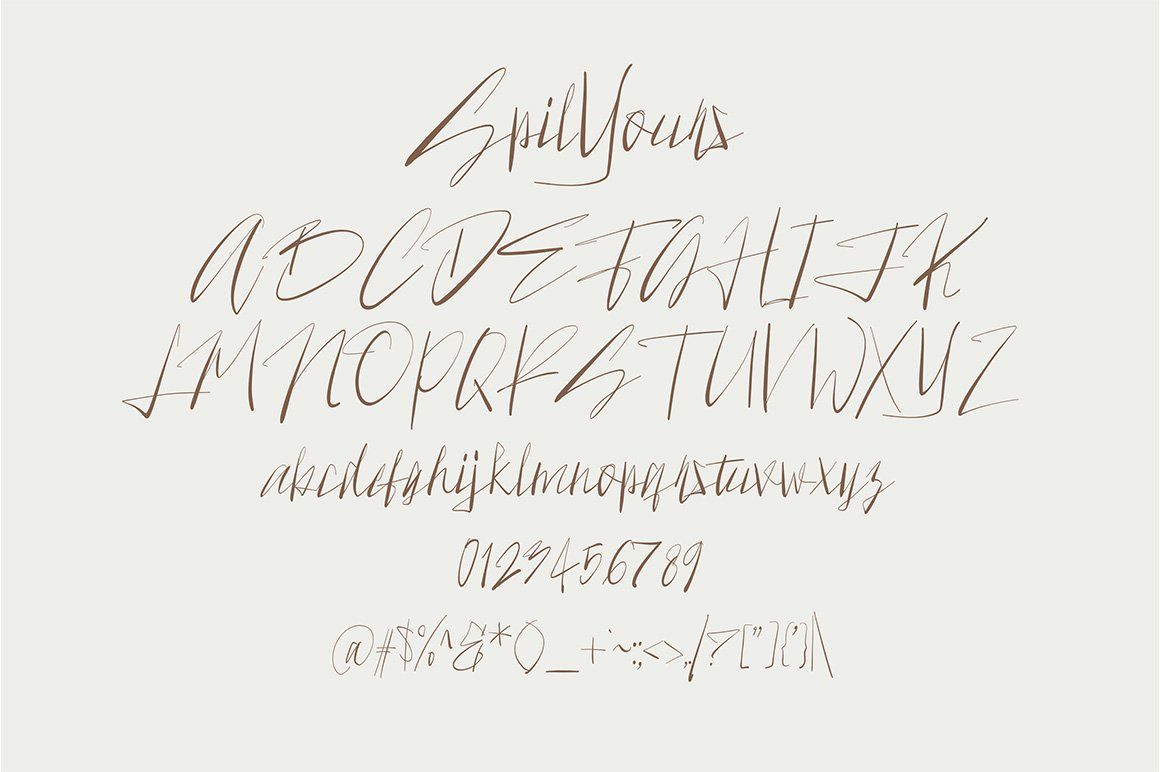 SpilYours
ABCDEFGHIJK
LMNOPQRSTUVWXYZ
abcdefghijklmnopqrstuvwxyz
0123456789
@#$%^&*()_+`~:;,<>.,/?["]{'}|\